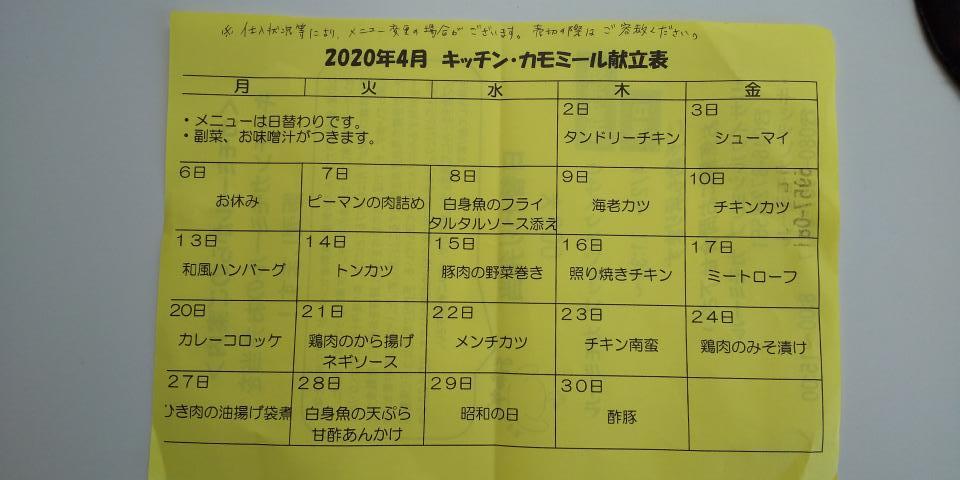 ※ 仕入状況等により、メニュー変更の場合がございます。売切の際はご容赦ください。
2020年4月 キッチン・カモミール献立表
月 火 水 木 金
・メニューは日替わりです。
・副菜、お味噌汁がつきます。
2日 3日
タンドリーチキン シューマイ
6日 7日 8日 9日 10日
お休み ピーマンの肉詰め 白身魚のフライ 海老カツ チキンカツ
タルタルソース添え
13日 14日 15日 16日 17日
和風ハンバーグ トンカツ 豚肉の野菜巻き 照り焼きチキン ミートローフ
20日 21日 22日 23日 24日
カレーコロッケ 鶏肉のから揚げ メンチカツ チキン南蛮 鶏肉のみそ漬け
ネギソース
27日 28日 29日 30日
ひき肉の油揚げ袋煮 白身魚の天ぷら 昭和の日 酢豚
甘酢あんかけ